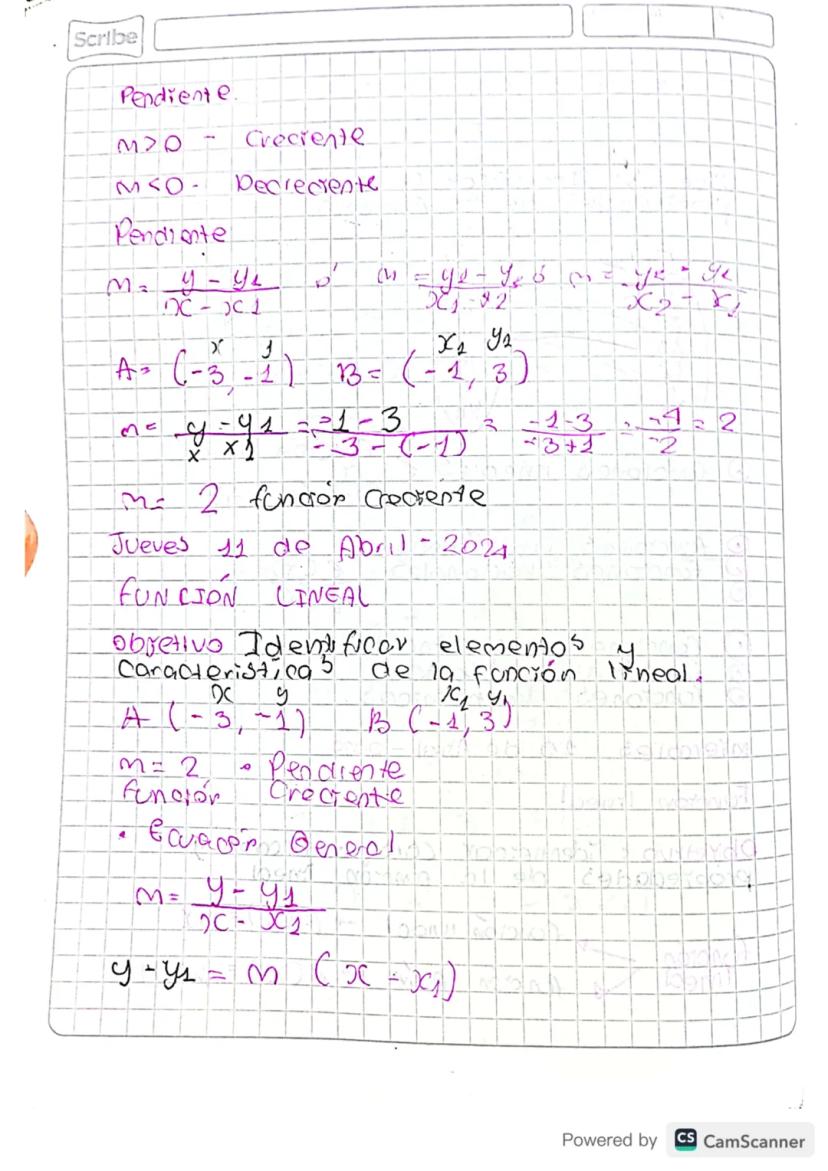 Scribe
Pendiente.
m>0 - Creciente
m<0 - Decreciente
Pendiente
m= y - y1 / x - x1 ó m = y1 - y2 / x1 - x2 ó m = y2 - y1 / x2 - x1
x y x1 y2
A= (-3, -1) B= (-1, 3)
m= y - y1 / x x1 = -1 - 3 / -3 - (-1) = -1-3 / -3+1 = -4 / -2 = 2
m= 2 función Creciente
Jueves 11 de Abril - 2024
FUNCIÓN LINEAL
Objetivo Identificar elementos y
características de la función lineal.
x y x1 y1
A (-3, -1) B (-1, 3)
m= 2 • Pendiente
función Creciente
• Ecuación General
m= y - y1 / x - x1
y - y1 = m (x - x1)
Powered by CS CamScanner